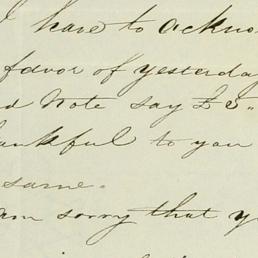 I have to ackno
favor of yesterday
d Note say £
ankful to you
same.
am sorry that y